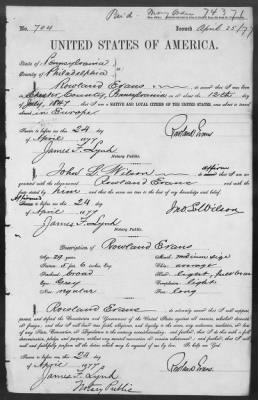 Pa'd. Mony Order 74371
No. 704
Issued April 25/77
UNITED STATES OF AMERICA.
State of Pennsylvania
County of Philadelphia
I, Rowland Evans do swear that I was born in
Chester County, Pennsylvania on or about the 12th day of
July, 1847 that I am a NATIVE AND LOYAL CITIZEN OF THE UNITED STATES, and about to travel
in Europe
Sworn to before me, this 24 day
of April 1877
Rowland Evans
James F. Lynd
Notary Public.
I, John L. Wilson affirm that I am
acquainted with the above named Rowland Evans and with the
facts stated by him and that the same are true to the best of my knowledge and belief.
Affirmed to before me, this 24 day
of April 1877
Jno. L. Wilson
James F. Lynd
Notary Public.
Description of Rowland Evans
Age: 29 years
Mouth: medium size
Stature: 5 feet 6 inches, Eng.
Chin: average
Forehead: broad
Hair: light
Eyes: Gray
Complexion: light
Nose: regular
Face: long
I, Rowland Evans do solemnly swear that I will support,
protect, and defend the Constitution and Government of the United States against all enemies, whether domestic
or foreign; and that I will bear true faith, allegiance, and loyalty to the same, any ordinance, resolution, or law
of any State, Convention, or Legislature to the contrary notwithstanding; and further, that I do this with a full
determination, pledge, and purpose, without any mental reservation or evasion whatsoever; and further, that I will
well and faithfully perform all the duties which may be required of me by law. So help me God.
Sworn to before me, this 24 day
of April 1877
Rowland Evans.
James F. Lynd
Notary Public